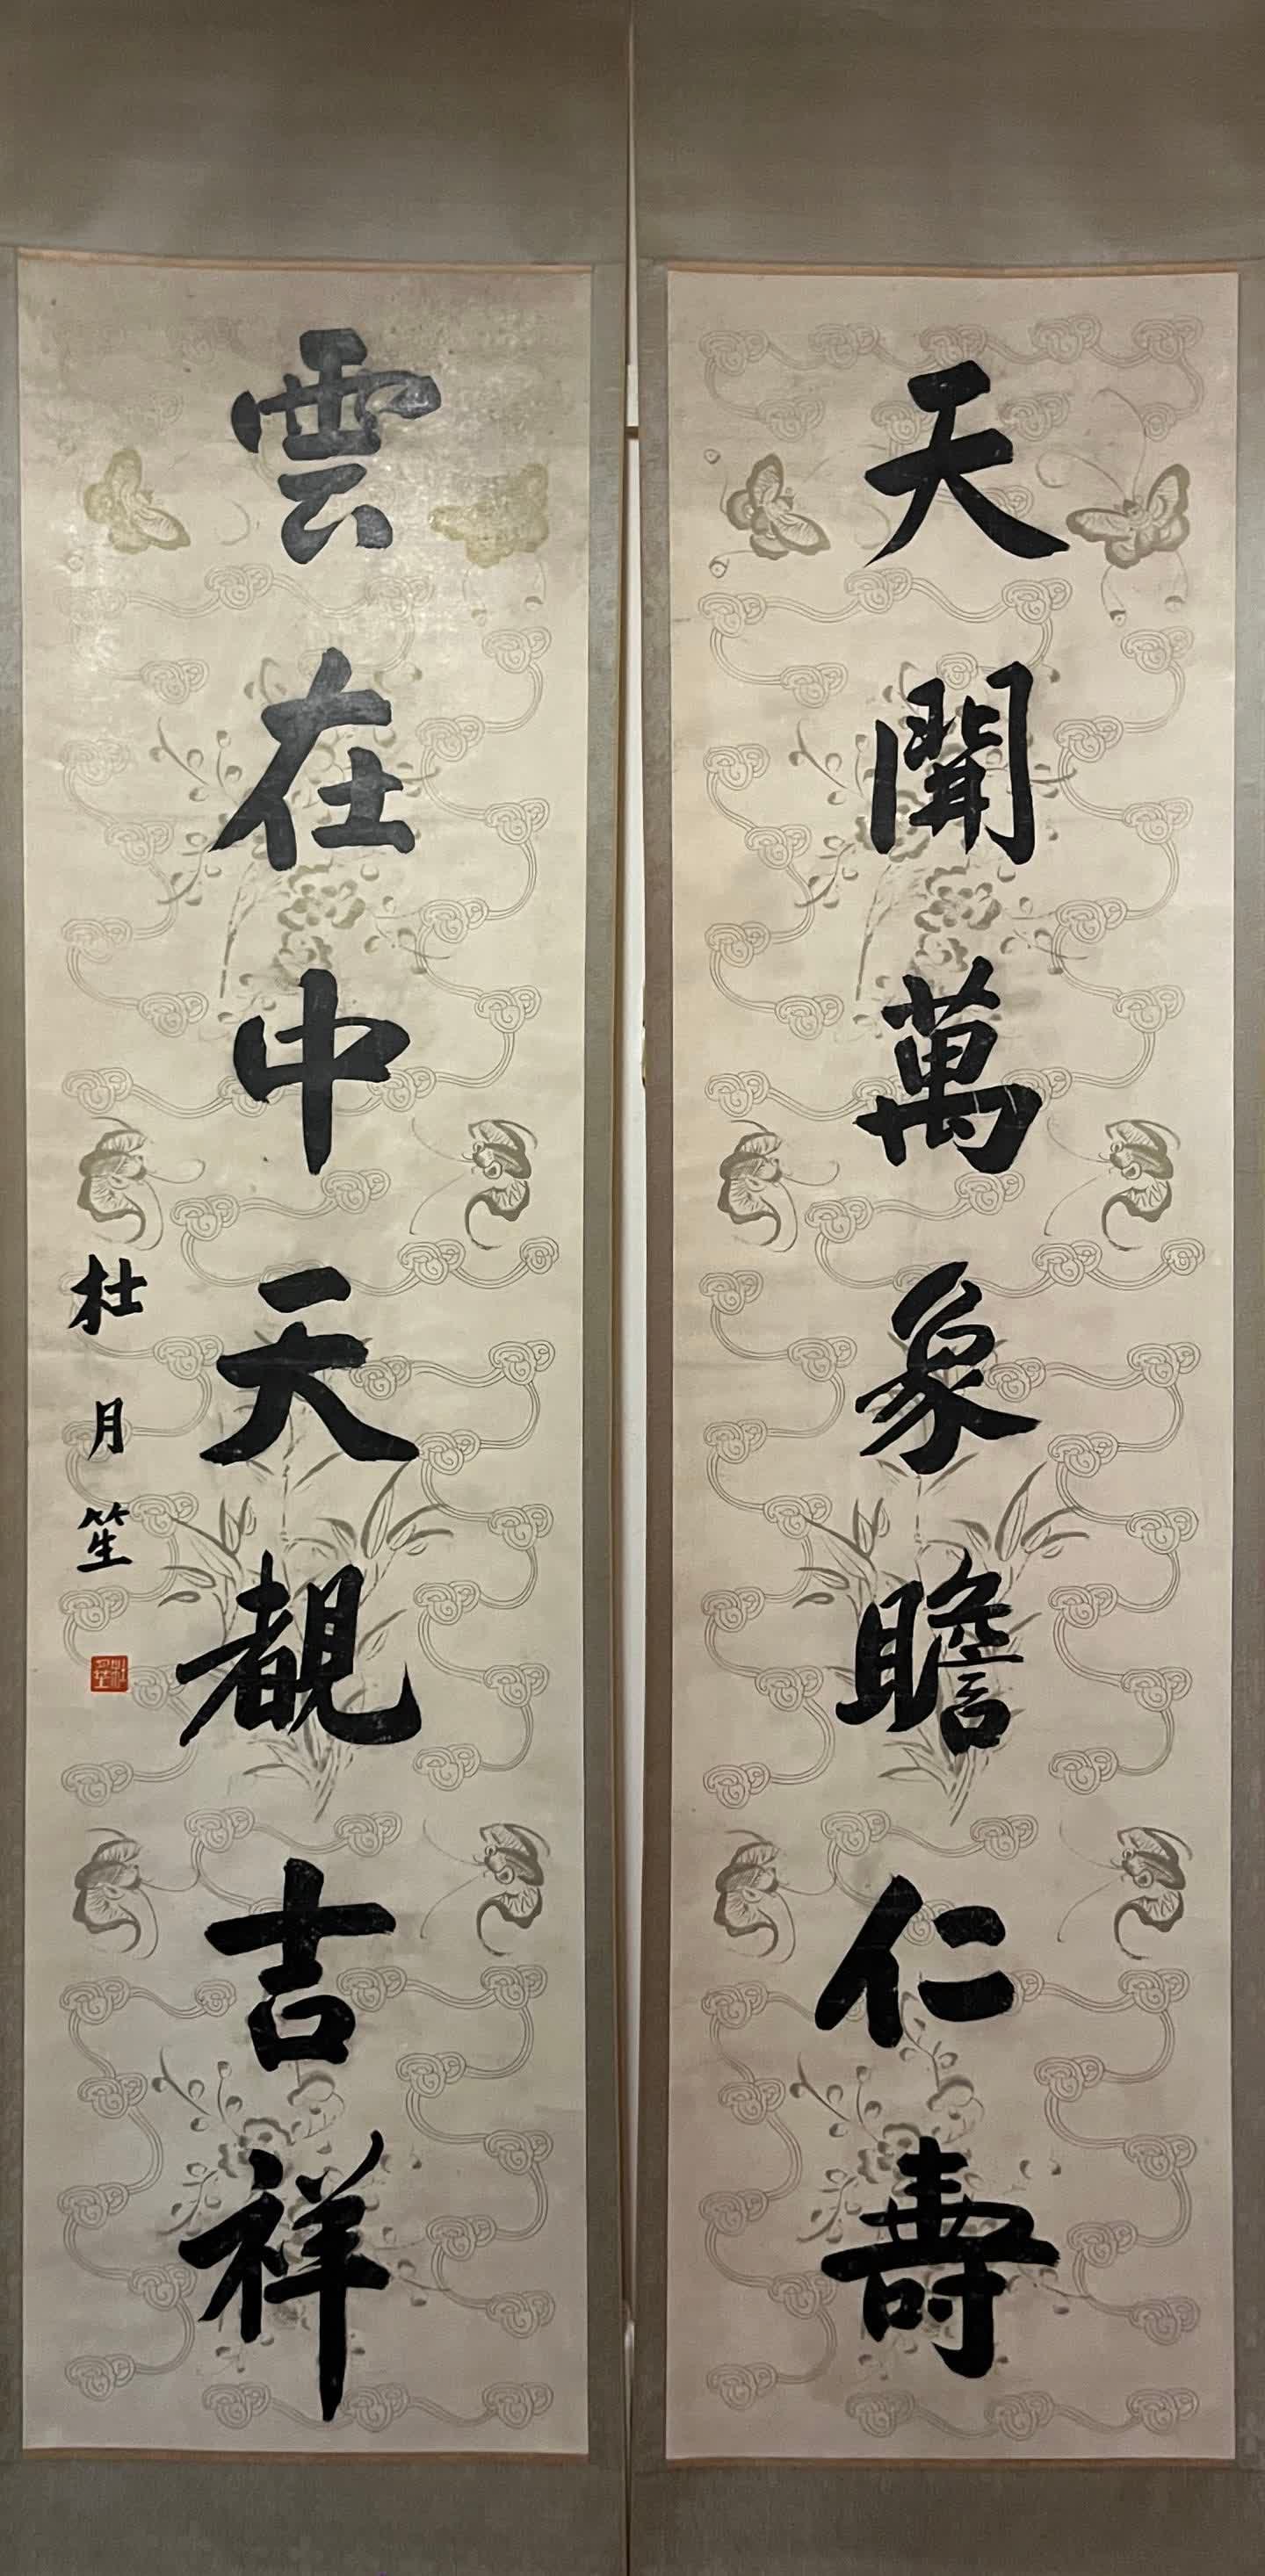 天開萬象瞻仁壽
雲在中天覩吉祥
杜月笙